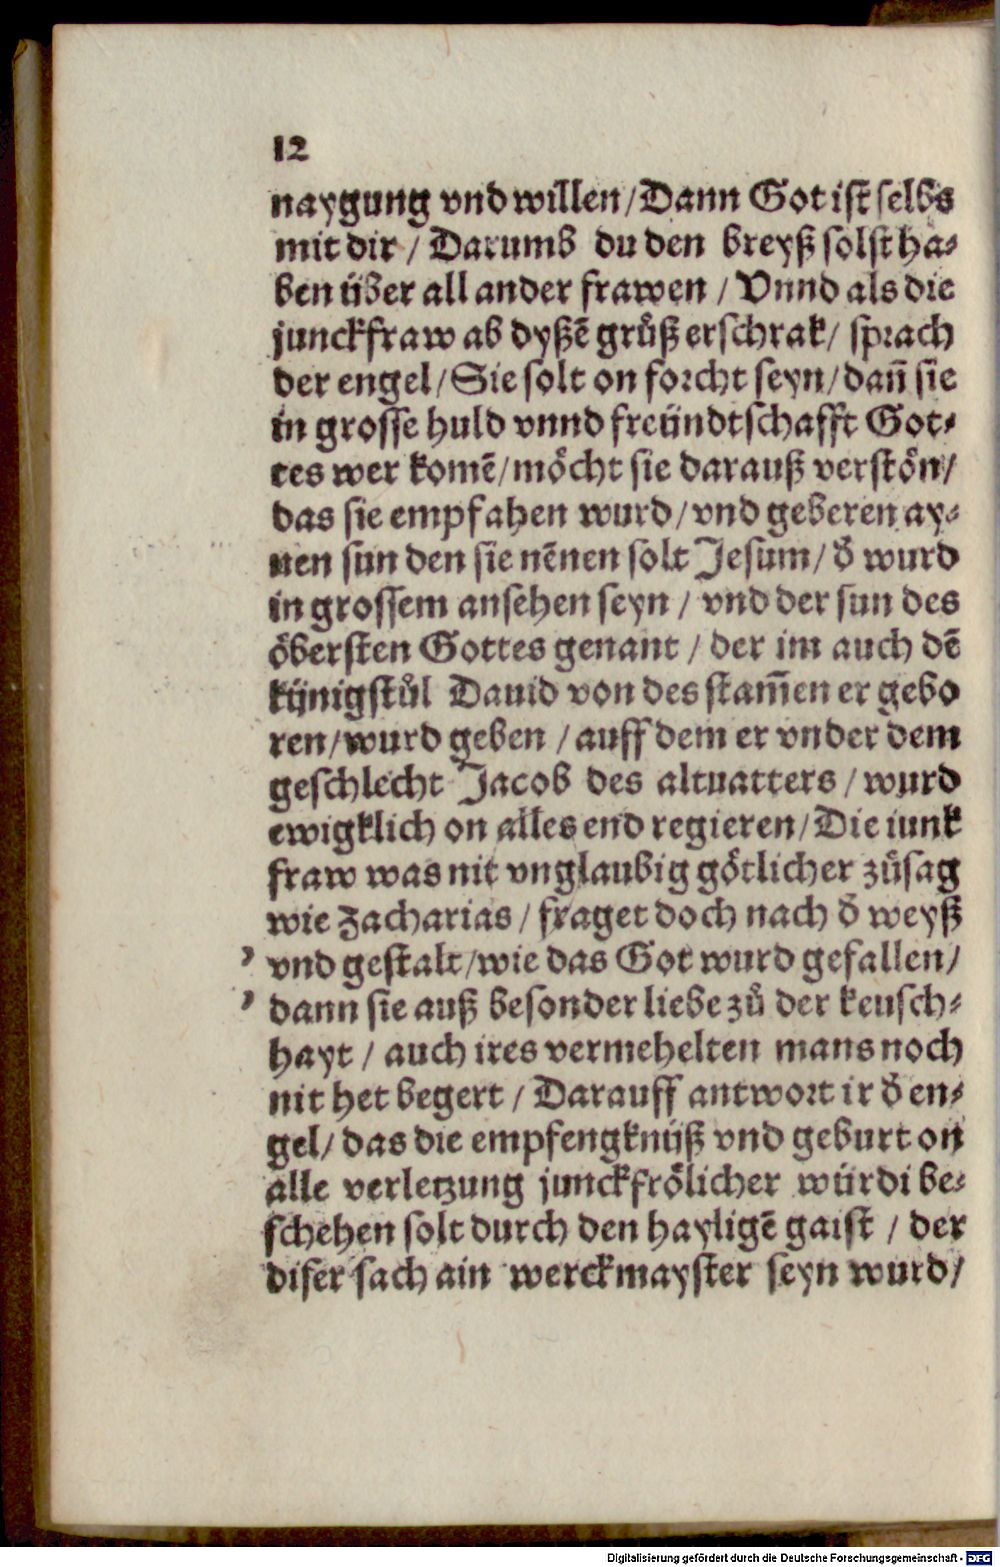 12
naygung vnd willen/Dann Got ist selbs
mit dir / Darumb du den breyß solst ha⸗
ben über all ander frawen / Vnnd als die
junckfraw ab dyßē grůß erschrak/ sprach
der engel/Sie solt on forcht seyn/dañ sie
in grosse huld vnnd freündtschafft Got⸗
tes wer komē/möcht sie darauß verstön/
das sie empfahen wurd/vnd geberen ay⸗
nen sun den sie nēnen solt Jesum/ď wurd
in grossem ansehen seyn / vnd der sun des
öbersten Gottes genant / der im auch dē
künigstůl Dauid von des stam̄en er gebo
ren/wurd geben / auff dem er vnder dem
geschlecht Jacob des altuatters / wurd
ewigklich on alles end regieren/Die iunk
fraw was nit vnglaubig götlicher zůsag
wie Zacharias / fraget doch nach ď weyß
vnd gestalt/wie das Got wurd gefallen/
dann sie auß besonder liebe zů der keusch⸗
hayt / auch ires vermehelten mans noch
nit het begert / Darauff antwort ir ď en⸗
gel/ das die empfengknüß vnd geburt on
alle verletzung junckfrölicher würdi be⸗
schehen solt durch den hayligē gaist / der
diser sach ain werckmayster seyn wurd/
Digitalisierung gefördert durch die Deutsche Forschungsgemeinschaft - DFG